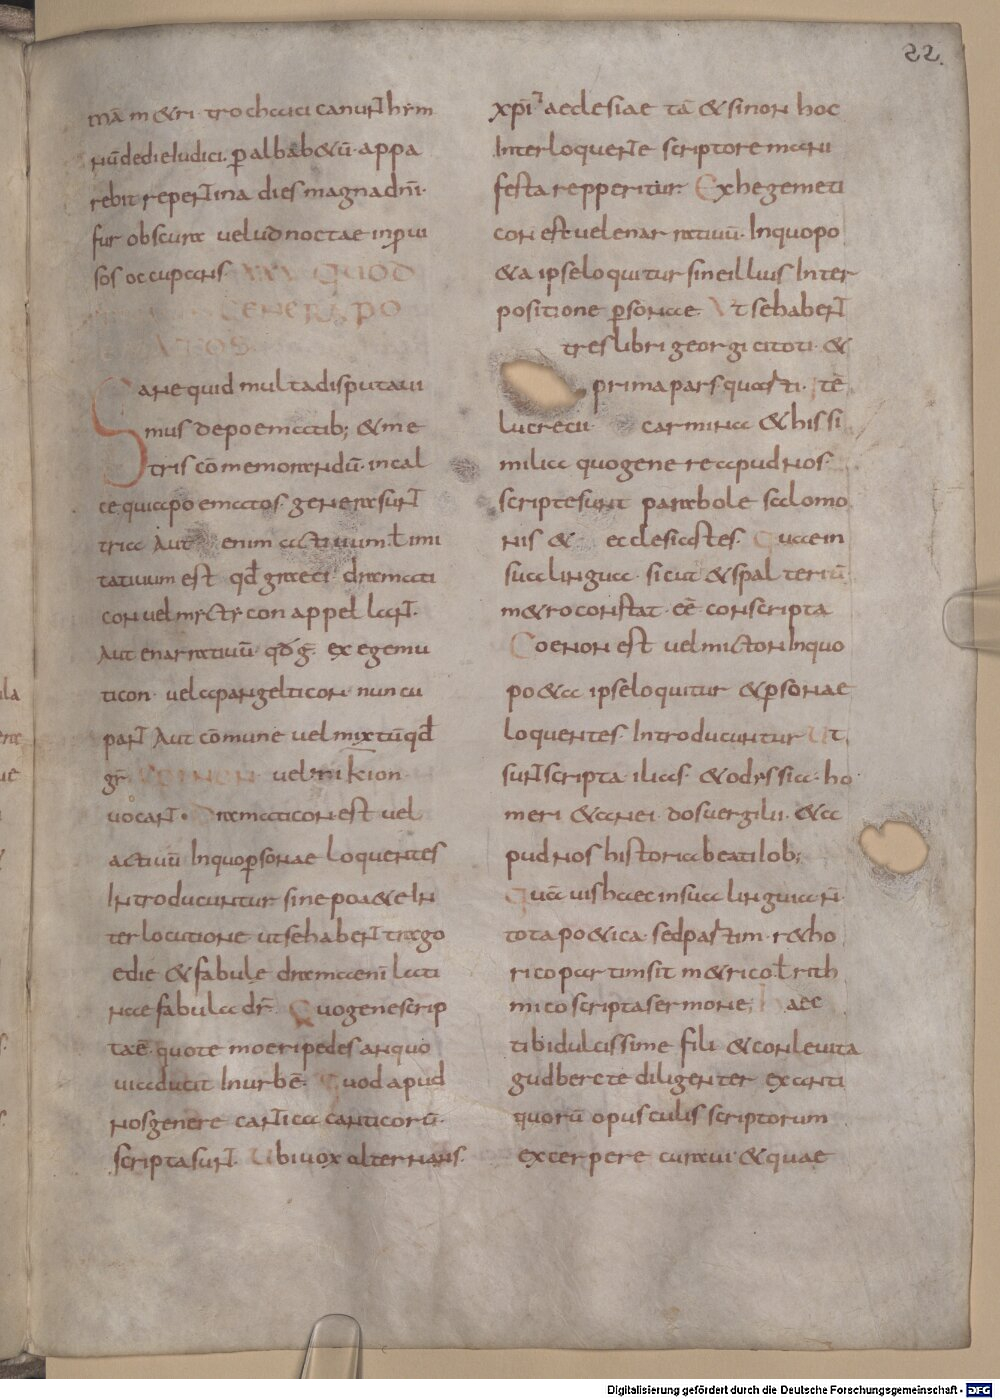 22.
mā m&ri trochaici canunt hym
nū dediēiudicii p̄ albab&ū· appa
rebit repentina dies magna dn̄i·
fur obscura velud noctae inprui
sos occupans XXV QUOD
GENERA PO
ATOS
Sane quid multa disputavi
mus de poematib; & me
tris cōmemorandū· in cal
ce quia poematos· genera sunt
tria Aut enim activum ł imi
tativum est qd̄ graeci dramati
con vel mycty con appellant·
Aut enarrativū· qd̄ ḡ· exegemu
ticon· vel apangelticon nuncu
pant Aut cōmune vel mixtū qd̄
gr̄ COENON vel mikton
vocant· Dramaticon est vel
activū Inquo p̄sonae loquentes
Introducuntur sine po&e In
terlocutione ut se habent trago
edie & fabule dramaenī lati
nae fabula dr̄ Quo gene scrip
ta ē· quo te moeri pedes an quo
via ducit In urbē· Quod apud
nos genere cantica canticorū·
scripta sunt· Ubi vox alternans·
xp̄i & aeclesiae tā & si non hoc
Interloquente scriptore mani
festa repperitur· Exhegemeti
con est vel enarrativū· In quo po
&a ipse loquitur sine illius Inter
positione p̄sonae Ut se habent
tres libri georgi ci toti· &
prima pars quarti· Itē
lucretii carmina & his si
milia quo genere apud nos·
scripte sunt parabole salomo
nis & ecclesiastes· Quae in
sua lingua· sicut & spalteriū·
m&ro constat· eē conscripta
Coenon est vel micton In quo
po&a ipse loquitur & p̄sonae
loquentes Introducuntur Ut
sunt scripta ilias· & odyssia· ho
meri & aenei· dos vergilii· & a
pud nos historia beati iob;
Quā uis haec in sua lingua n̄
tota po&ica· sed partim· r&ho
rico partim sit m&rico ł rith
mico scripta sermone; Haec
tibi dulcissime fili & conlevita
gudberecte diligenter ex anti
quorū opusculis scriptorum
excerpere curavi· & quae
Digitalisierung gefördert durch die Deutsche Forschungsgemeinschaft - DFG